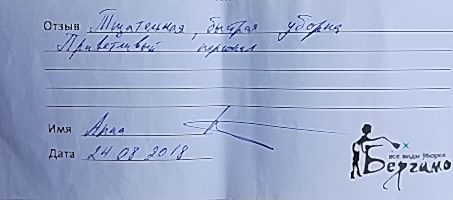 Отзыв Тщательная, быстрая уборка
Приветливый персонал
Имя Анна
Дата 24 08 2018
все виды уборки
Бергино